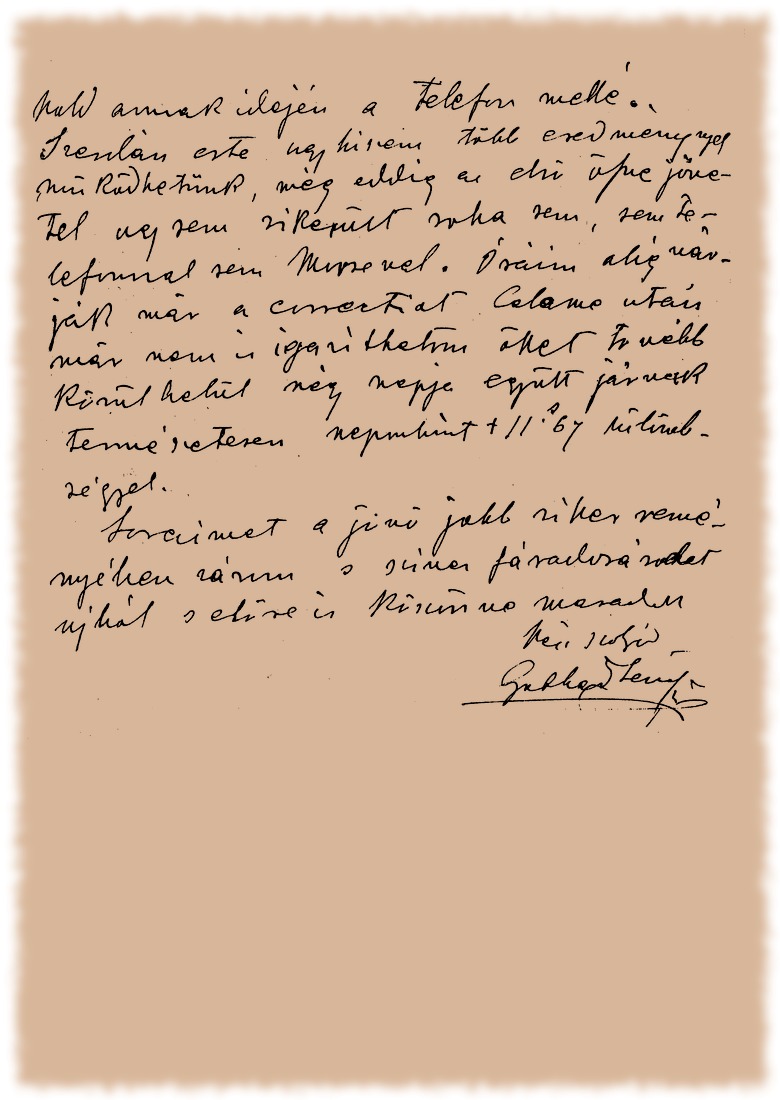 annak idején a telefon mellé.
Szerdán este ugy hiszem több eredménynyel
működhetünk, még eddig az első össze jöve-
tel ugy sem sikerült soha sem, sem te-
lefonnal sem Morseval. Óráim alig vár-
ják már a correctiot Calamo után
már nem is igazithatom őket tovább
Körül belül négy napja együtt járnak
természetesen naponkint + 11.s67 különb-
séggel.
Soraimat a jövő jobb siker remé-
nyében zárom s szives fáradozásodat
ujból s előre is köszönve maradok
kész szolgád
Gothard Jenő